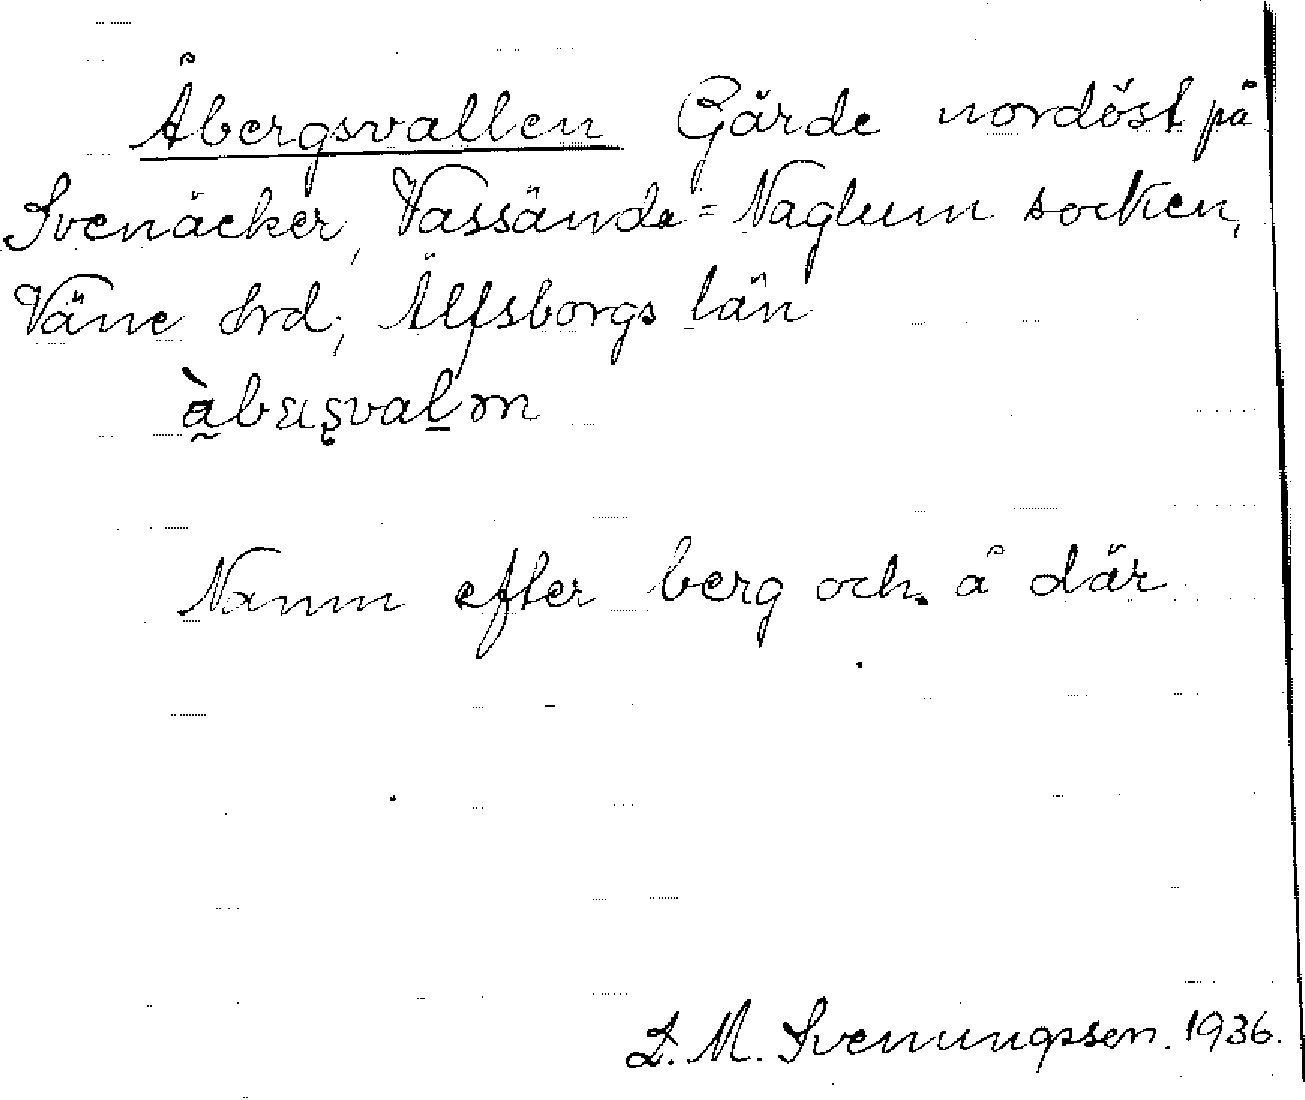 Åbergsvallen Gärde nordöst på
Svenäcker, Vassända=Naglum socken,
Väne hrd, Älfsborgs län
Namn efter berg och å där.
L. M. Svenungsson. 1936.